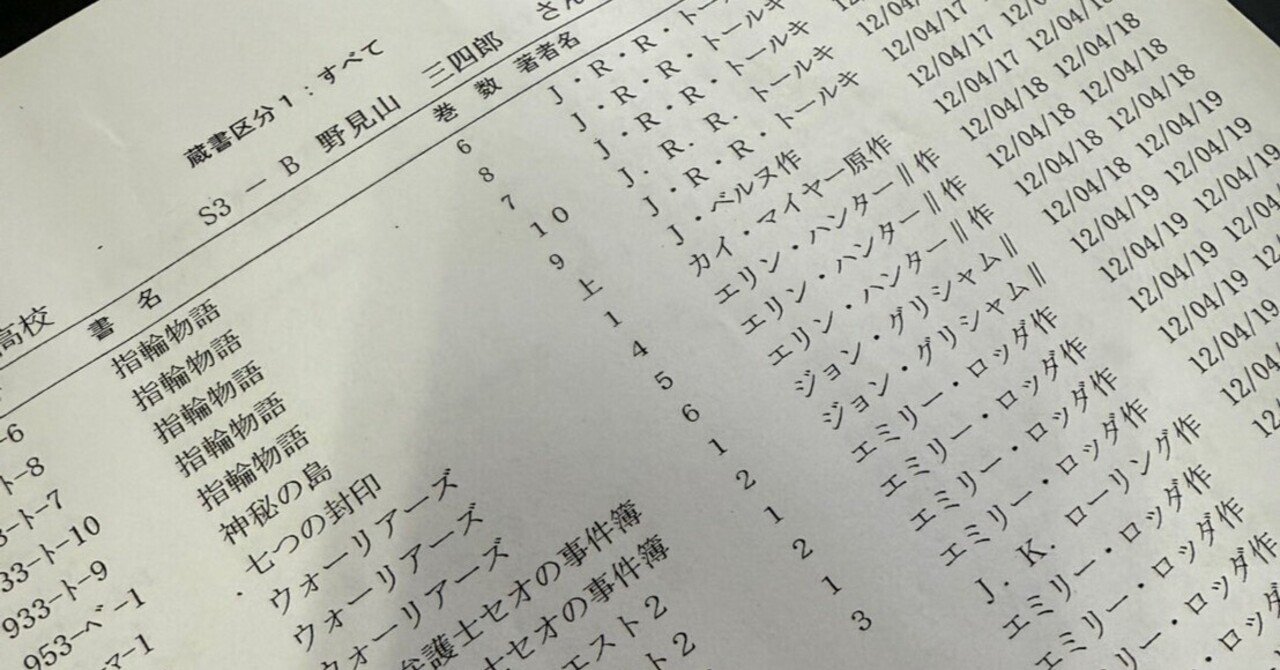 蔵書区分1:すべて
高校 S3 － B 野見山 三四郎 さん
書 名 巻 数 著者名
-6 指輪物語 6 J・R・R・トールキ
ト-8 指輪物語 8 J・R・R・トールキ
3-ト-7 指輪物語 7 J・R・R・トールキ
33-ト-10 指輪物語 10 J. R. R. トールキ 12/04/17
933-ト-9 指輪物語 9 J・R・R・トールキ 12/04/17
953-ベ-1 神秘の島 上 J・ベルヌ作 12/04/17 12/04/18
マ-1 七つの封印 1 カイ・マイヤー原作 12/04/18 12/04/18
ウォーリアーズ 4 エリン・ハンター‖作 12/04/18 12/04/18
ウォーリアーズ 5 エリン・ハンター‖作 12/04/18 12/04/19
ウォーリアーズ 6 エリン・ハンター‖作 12/04/18 12/04/19
弁護士セオの事件簿 1 ジョン・グリシャム‖ 12/04/19 12/04/19
士セオの事件簿 2 ジョン・グリシャム‖ 12/04/19 12/04/19
エスト2 1 エミリー・ロッダ作 12/04/19
ト2 2 エミリー・ロッダ作 12/04/19
1 エミリー・ロッダ作 12/04/19
3 エミリー・ロッダ作 12/04/19
J. K. ローリング作
エミリー・ロッダ作
エミリー・ロッダ作
リー・ロッダ作